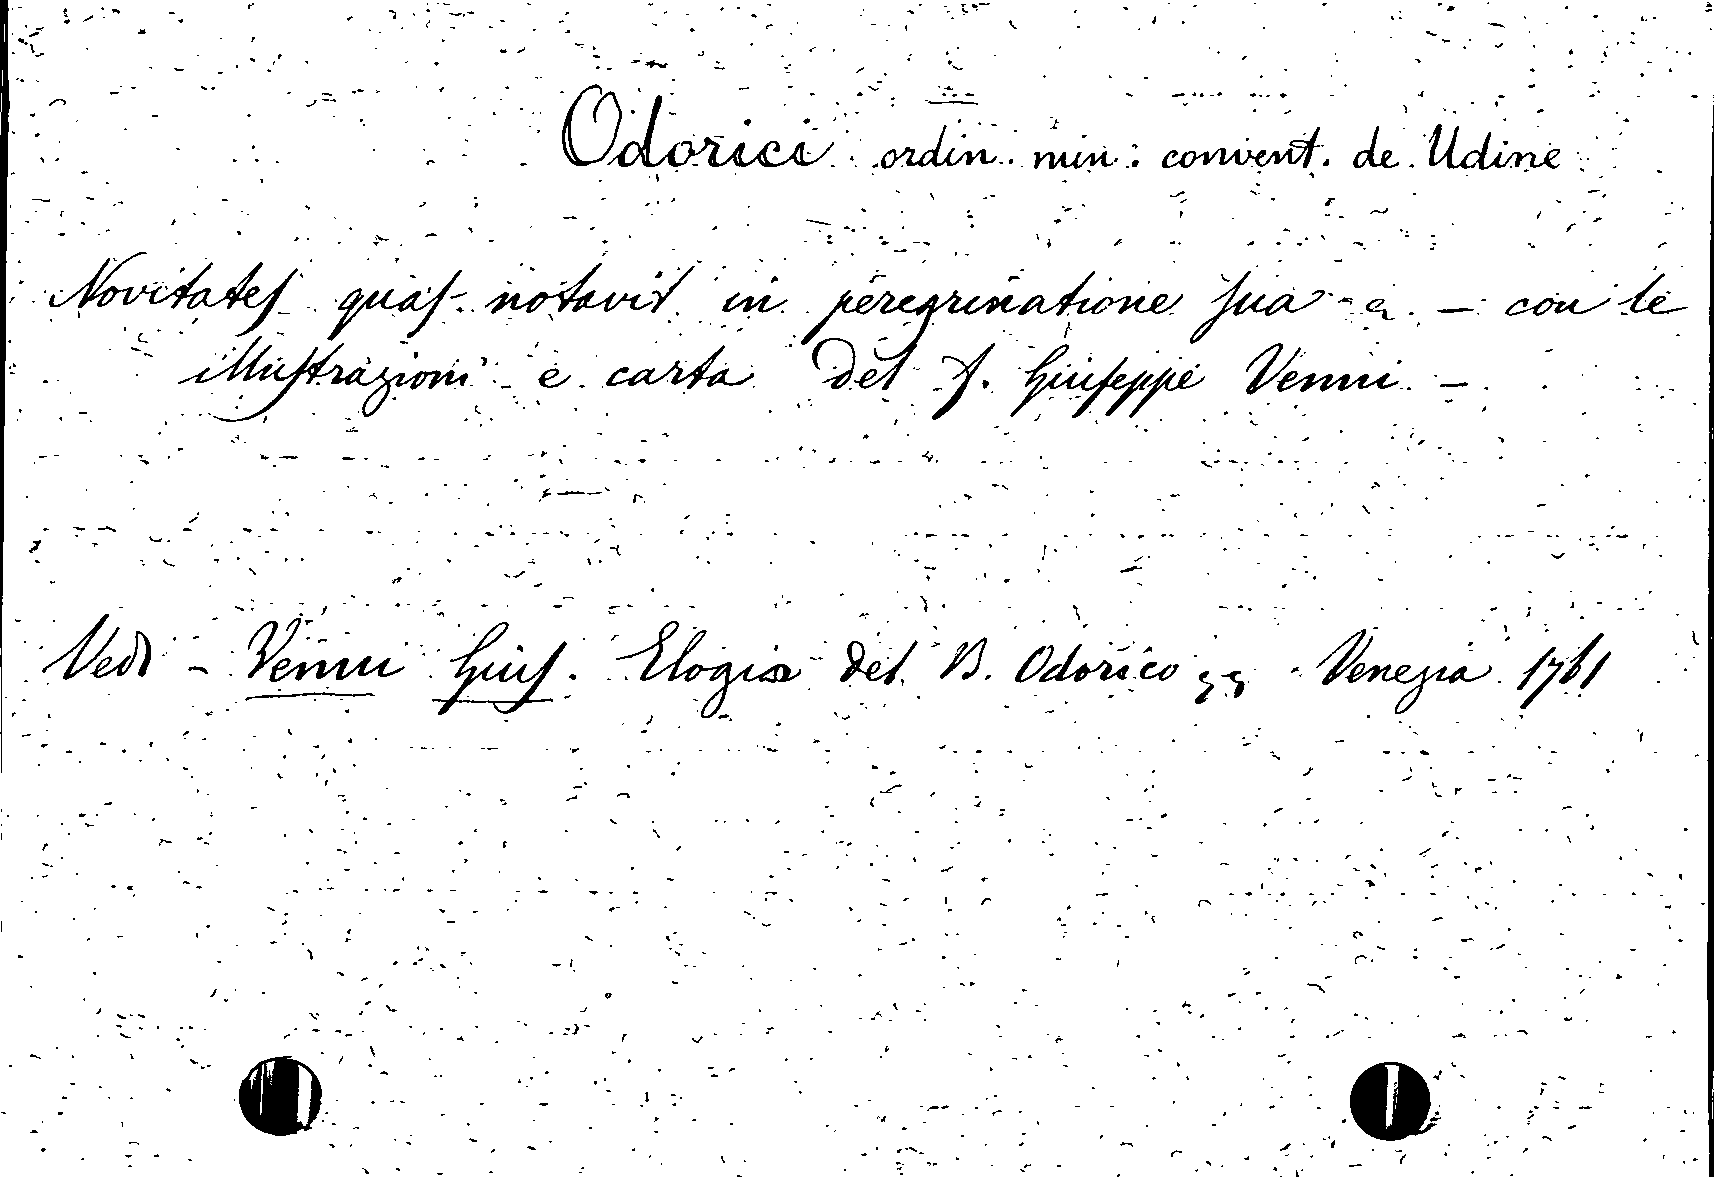 Odorici ordin. min: convent. de Udine
Novitates quas notavit in peregrinatione sua - - con le
illustrazioni e carta del P. Giuseppe Venni -
Vedi - Venni Gius. Elogio del B. Odorico Venezia 1761